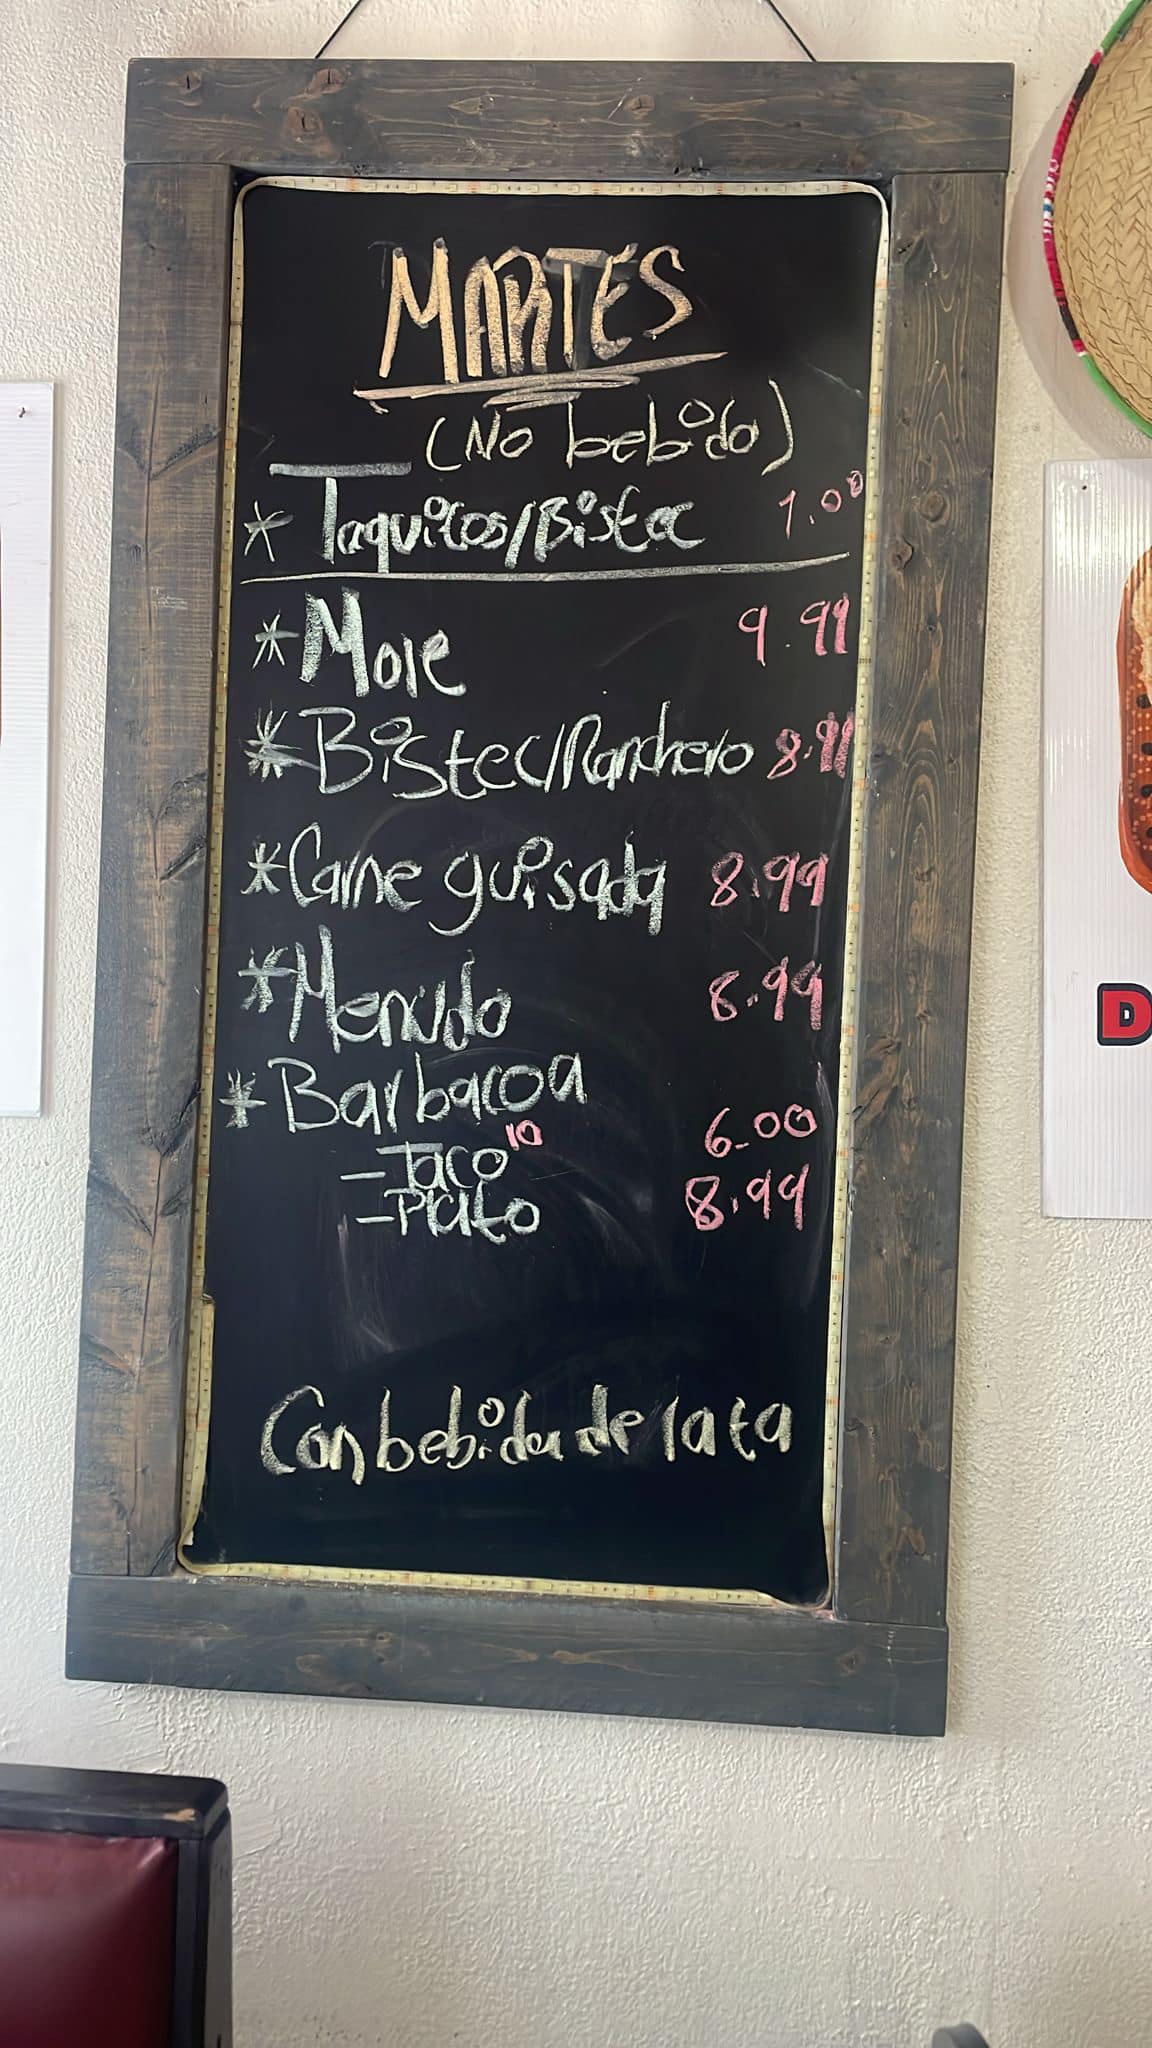 MARTES
(No bebida)
* Taquitos/Bistec 1.00
* Mole 9.99
* Bistec/Ranchero 8.99
* Carne guisada 8.99
* Menudo 8.99
* Barbacoa
- Taco 10 6.00
- Plato 8.99
Con bebida de lata
D